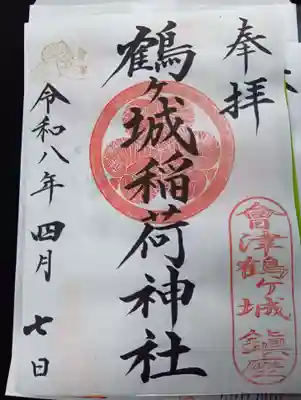 奉拝
會津鶴ヶ城鎮座
鶴ヶ城稲荷神社
令和八年四月七日